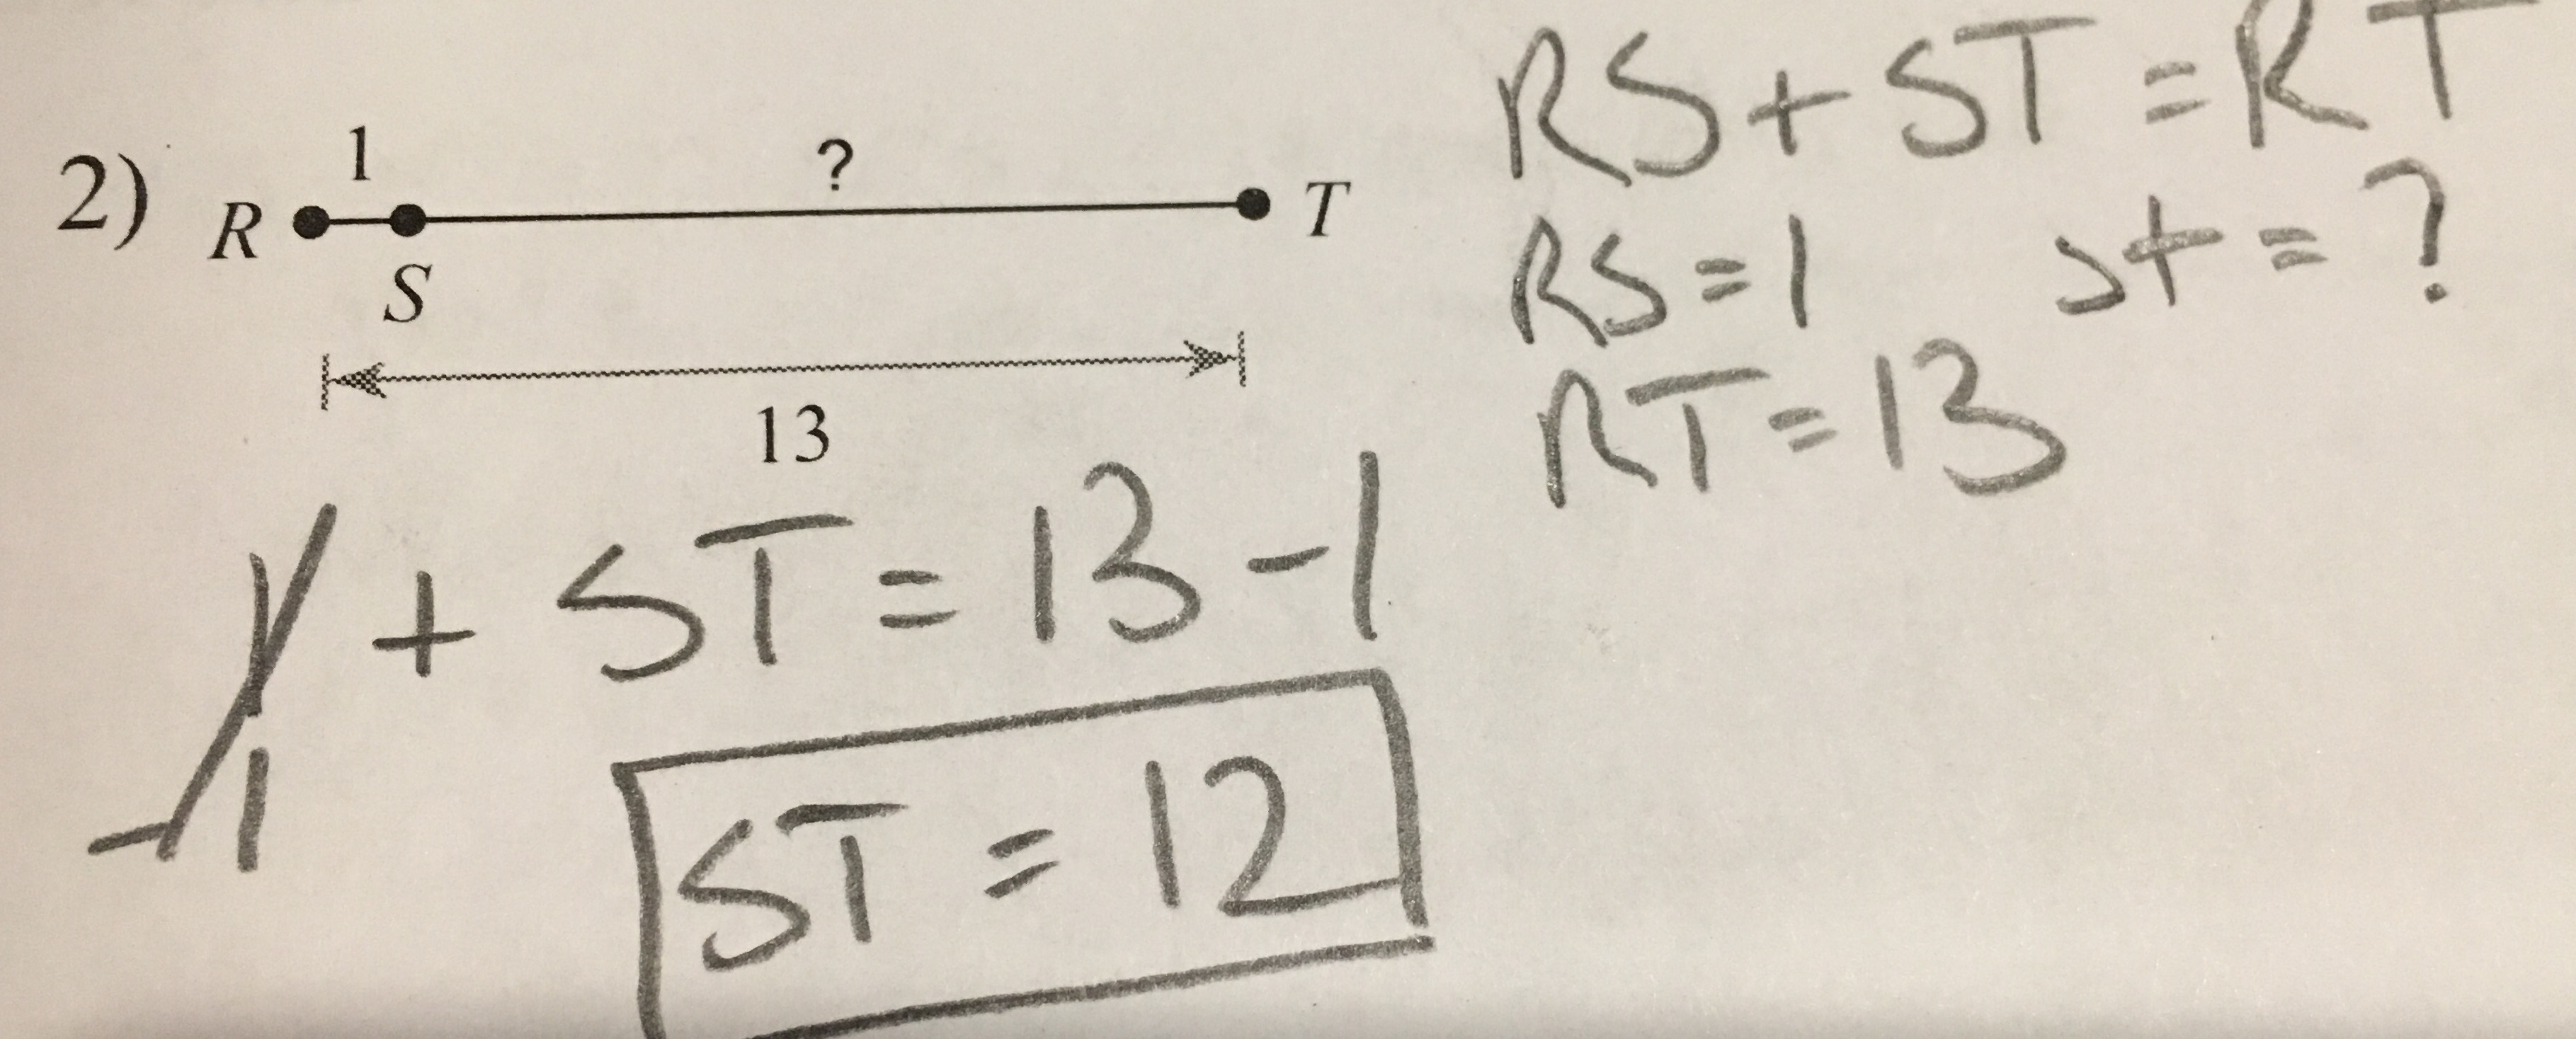 2) R 1 S ? T
13
RS + ST = RT
RS = 1 st = ?
RT = 13
1 + ST = 13 - 1
-1
ST = 12